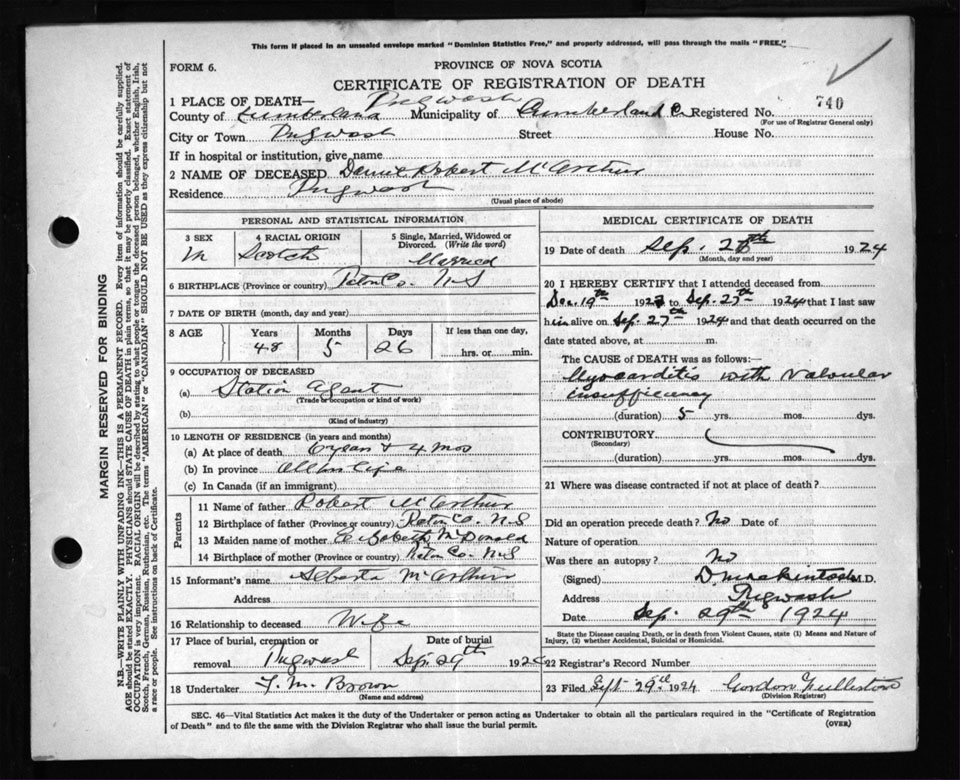 This form if placed in an unsealed envelope marked "Dominion Statistics Free," and properly addressed, will pass through the mails "FREE."
FORM 6.
PROVINCE OF NOVA SCOTIA
CERTIFICATE OF REGISTRATION OF DEATH
1 PLACE OF DEATH— Pugwash 740
County of Cumberland Municipality of Cumberland Co. Registered No.
(For use of Registrar General only)
City or Town Pugwash Street House No.
If in hospital or institution, give name
2 NAME OF DECEASED Robert McArthur
Residence Pugwash
(Usual place of abode)
PERSONAL AND STATISTICAL INFORMATION
3 SEX 4 RACIAL ORIGIN 5 Single, Married, Widowed or Divorced. (Write the word)
M Scotch Married
6 BIRTHPLACE (Province or country) Picton Co. N.S
7 DATE OF BIRTH (month, day and year)
8 AGE Years Months Days If less than one day,
48 5 26 hrs. or min.
9 OCCUPATION OF DECEASED
(a) Station Agent
(Trade or occupation or kind of work)
(b)
(Kind of industry)
10 LENGTH OF RESIDENCE (in years and months)
(a) At place of death 6 years + 4 mos
(b) In province All his life
(c) In Canada (if an immigrant)
Parents
11 Name of father Robert McArthur
12 Birthplace of father (Province or country) Picton Co. N.S
13 Maiden name of mother McDonald
14 Birthplace of mother (Province or country) Picton Co. N.S
15 Informant's name Alberta McArthur
Address
16 Relationship to deceased Wife
17 Place of burial, cremation or removal Pugwash Date of burial Sep. 29th 1924
18 Undertaker Brown
(Name and address)
MEDICAL CERTIFICATE OF DEATH
19 Date of death Sep. 28th 1924
(Month, day and year)
20 I HEREBY CERTIFY that I attended deceased from
Dec. 19th 1923 to Sep. 27th 1924 that I last saw
him alive on Sep. 27th 1924 and that death occurred on the
date stated above, at m.
The CAUSE of DEATH was as follows:
Myocarditis with Valvular
insufficiency
(duration) 5 yrs. mos. dys.
CONTRIBUTORY
(Secondary)
(duration) yrs. mos. dys.
21 Where was disease contracted if not at place of death?
Did an operation precede death? No Date of
Nature of operation
Was there an autopsy? No
(Signed) D. Mackintosh M.D.
Address Pugwash
Date Sep. 29th 1924
State the Disease causing Death, or in death from Violent Causes, state (1) Means and Nature of
Injury, (2) whether Accidental, Suicidal or Homicidal.
22 Registrar's Record Number
23 Filed Sept 29th 1924 Gordon
(Division Registrar)
SEC. 46—Vital Statistics Act makes it the duty of the Undertaker or person acting as Undertaker to obtain all the particulars required in the "Certificate of Registration
of Death" and to file the same with the Division Registrar who shall issue the burial permit. (OVER)
MARGIN RESERVED FOR BINDING
N.B.—WRITE PLAINLY WITH UNFADING INK—THIS IS A PERMANENT RECORD. Every item of information should be carefully supplied.
AGE should be stated EXACTLY. PHYSICIANS should STATE CAUSE OF DEATH in plain terms, so that it may be properly classified. Exact statement of
OCCUPATION is very important. RACIAL ORIGIN will be described by stating to what people or tongue the deceased person belonged, whether English, Irish,
Scotch, French, German, Russian, Ruthenian, etc. The terms "AMERICAN" or "CANADIAN" SHOULD NOT BE USED as they express citizenship but not
a race or people. See instructions on back of Certificate.